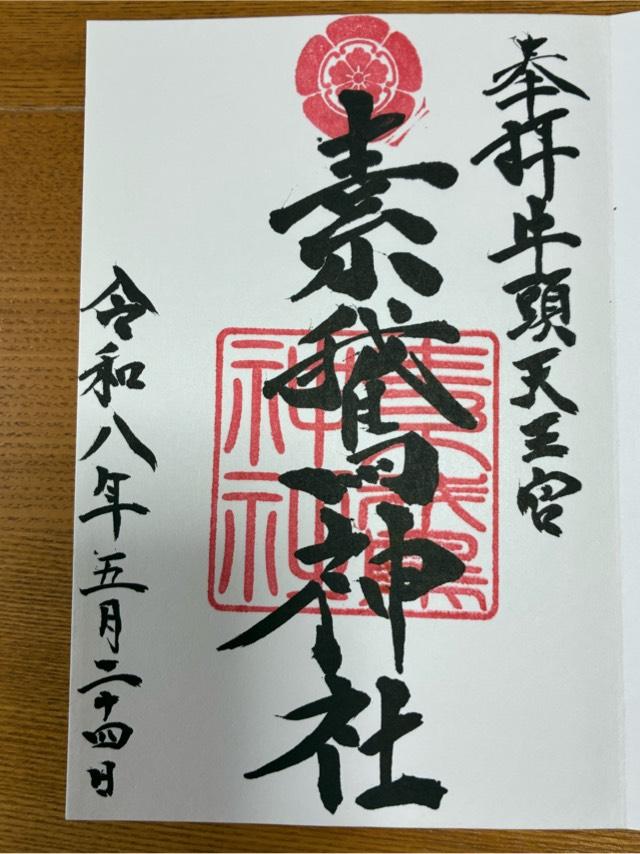 奉拝 牛頭天王宮
素鵞神社
素鵞神社
令和八年五月二十四日